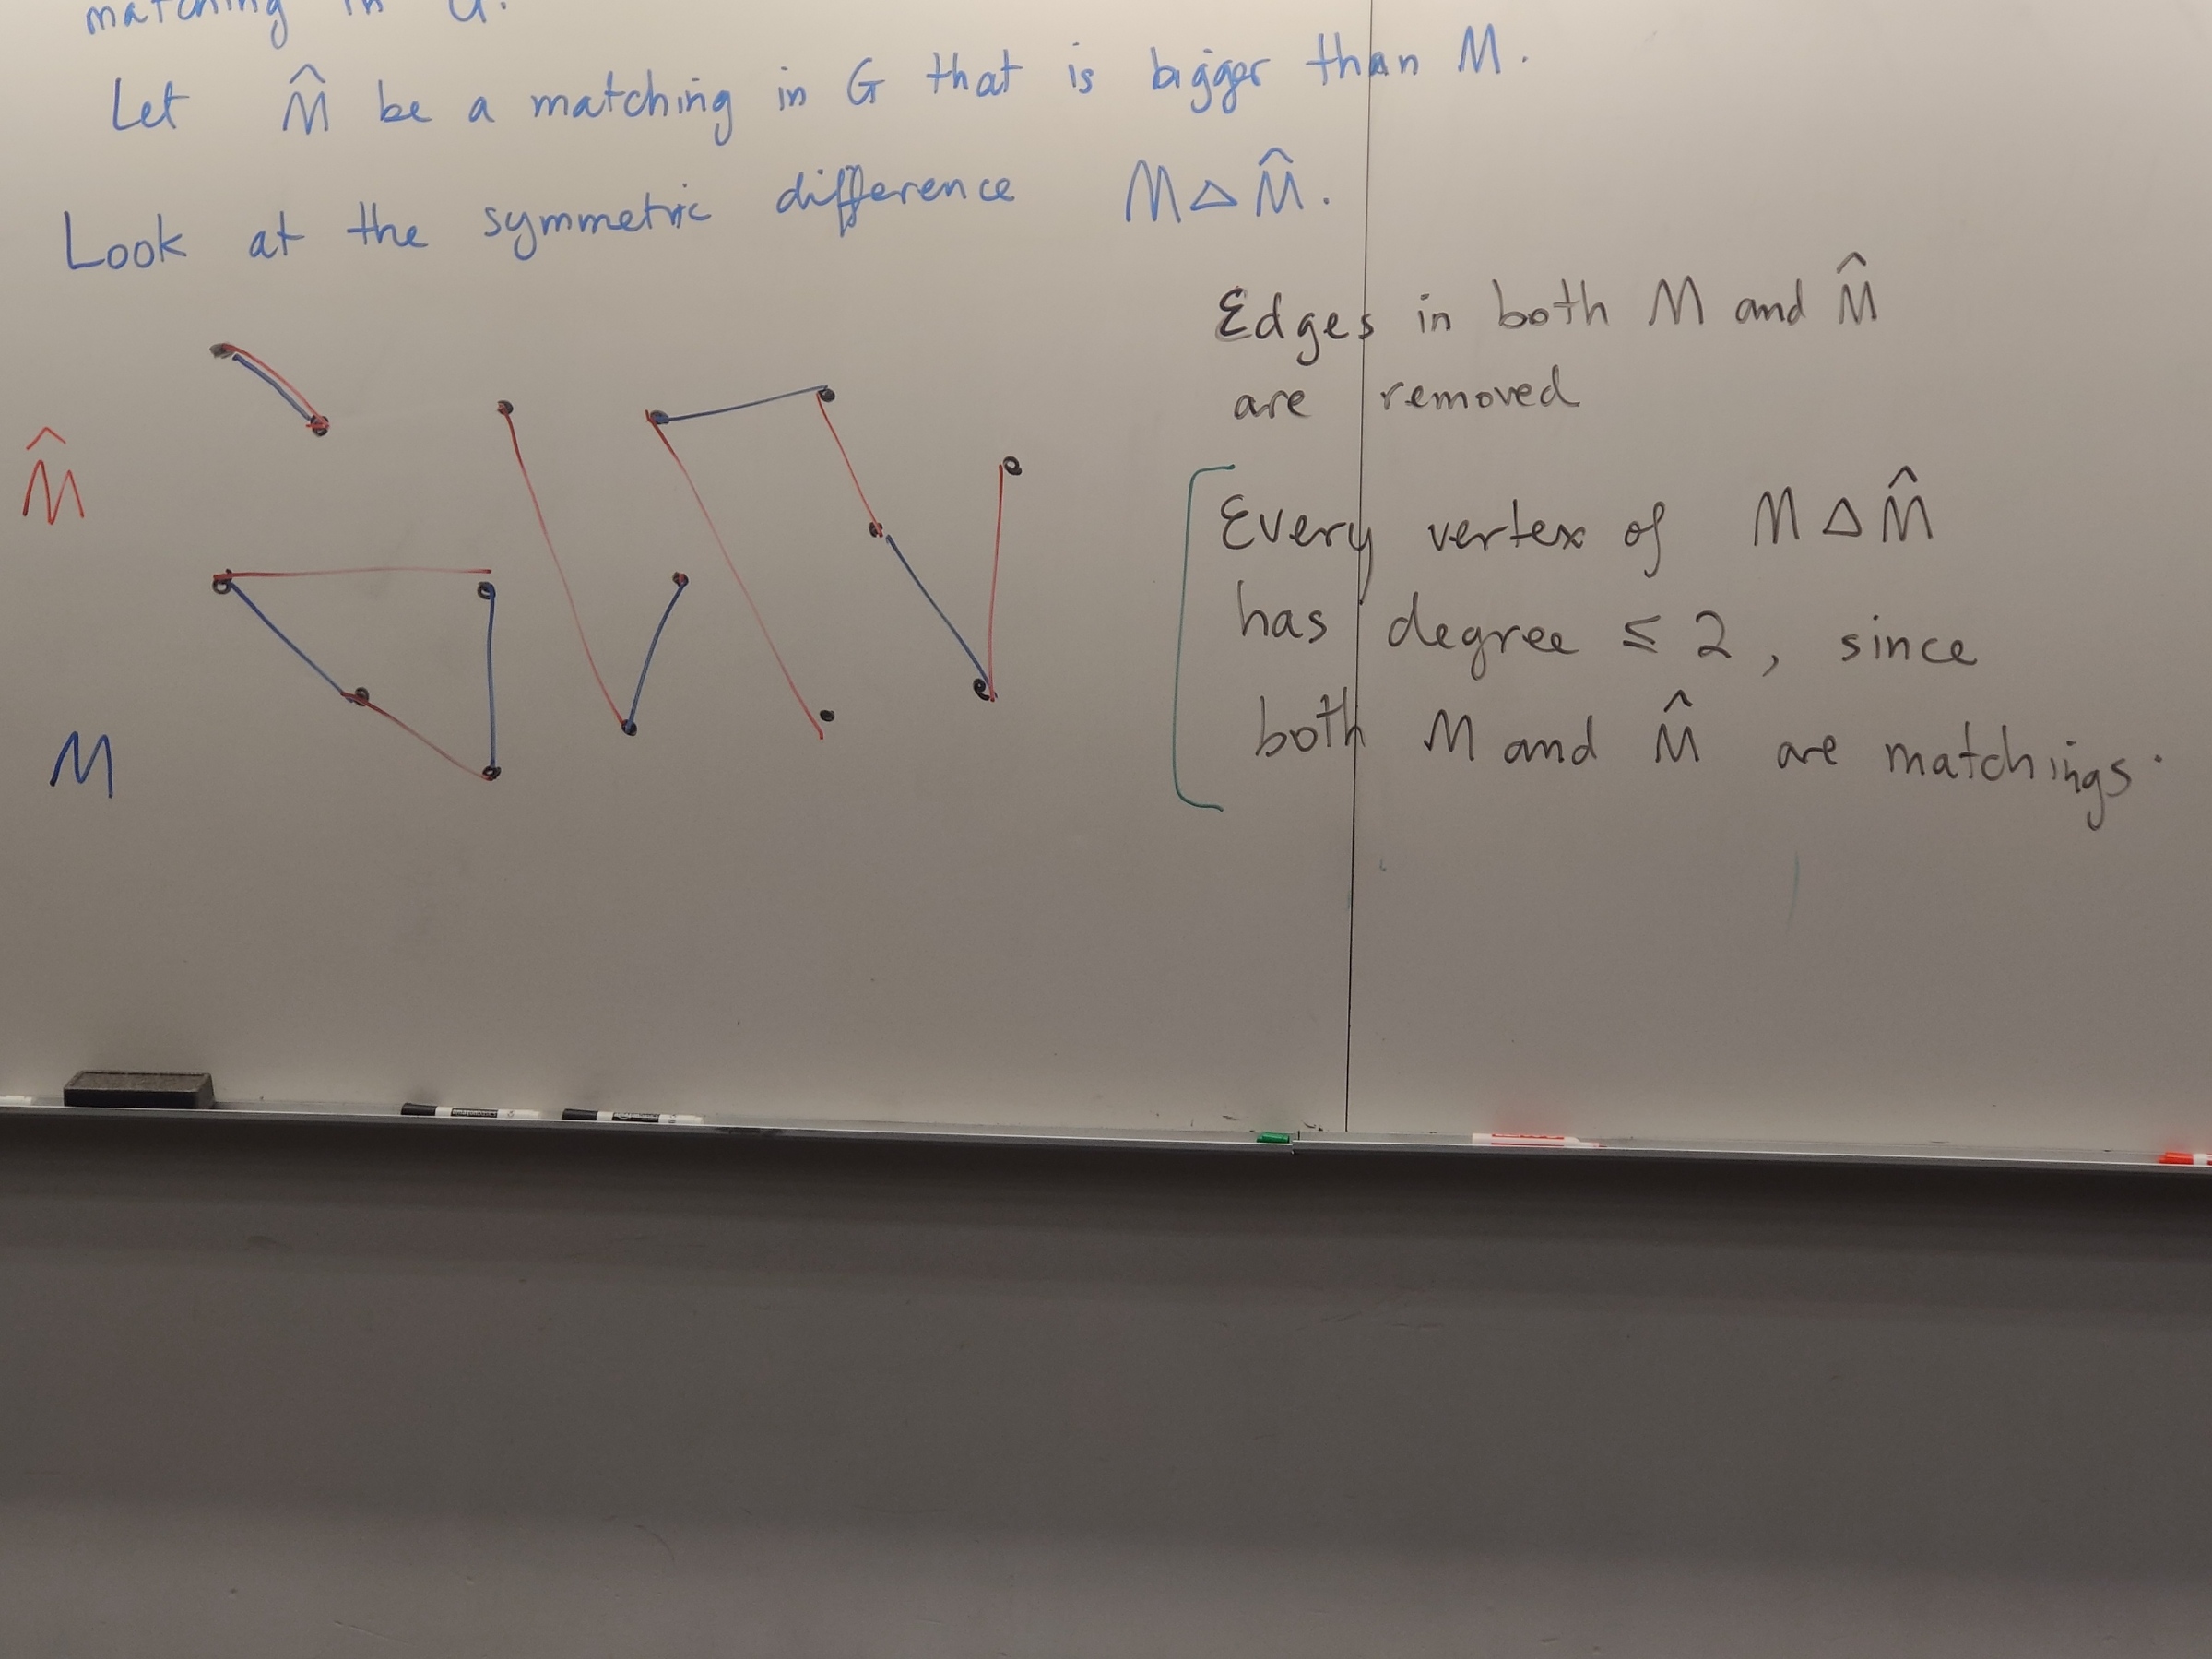 matching in G.
Let M̂ be a matching in G that is bigger than M.
Look at the symmetric difference M △ M̂.
Edges in both M and M̂
are removed
M̂
Every vertex of M △ M̂
has degree ≤ 2, since
both M and M̂ are matchings.
M